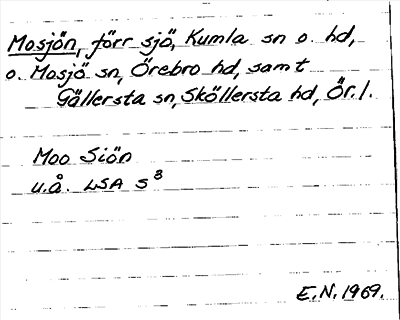 Mosjön, förr sjö, Kumla sn o. hd,
o. Mosjö sn, Örebro hd, samt
Gällersta sn, Sköllersta hd, Ör. l.
Moo Siön
u.å. LSA S³
E.N. 1969.